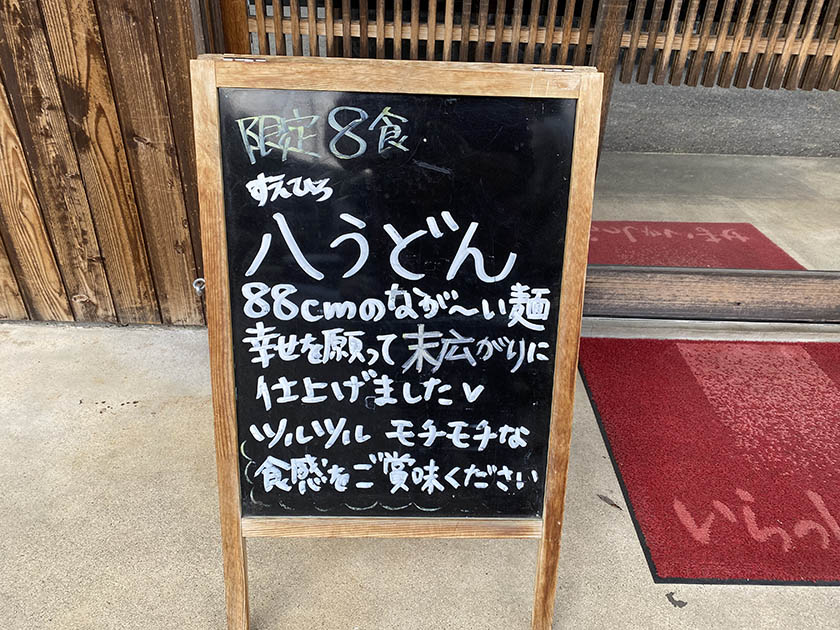 限定8食
すえひろ
八うどん
88cmのなが〜い麺
幸せを願って末広がりに
仕上げました
ツルツル モチモチな
食感をご賞味ください
いらっ